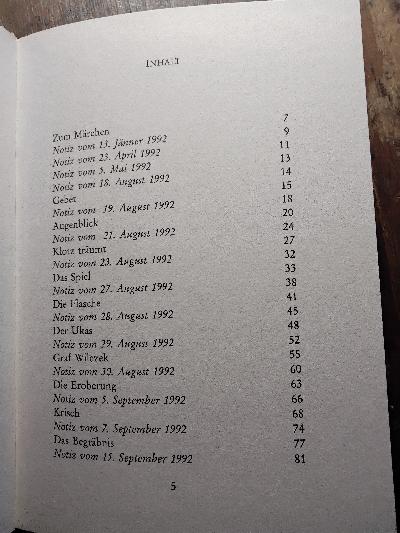 INHALT
Zum Märchen 7
Notiz vom 13. Jänner 1992 9
Notiz vom 23. April 1992 11
Notiz vom 5. Mai 1992 13
Notiz vom 18. August 1992 14
Gebet 15
Notiz vom 19. August 1992 18
Augenblick 20
Notiz vom 21. August 1992 24
Klotz träumt 27
Notiz vom 23. August 1992 32
Das Spiel 33
Notiz vom 27. August 1992 38
Die Flasche 41
Notiz vom 28. August 1992 45
Der Ukas 48
Notiz vom 29. August 1992 52
Graf Wilczek 55
Notiz vom 30. August 1992 60
Die Eroberung 63
Notiz vom 5. September 1992 66
Krisch 68
Notiz vom 7. September 1992 74
Das Begräbnis 77
Notiz vom 15. September 1992 81
5